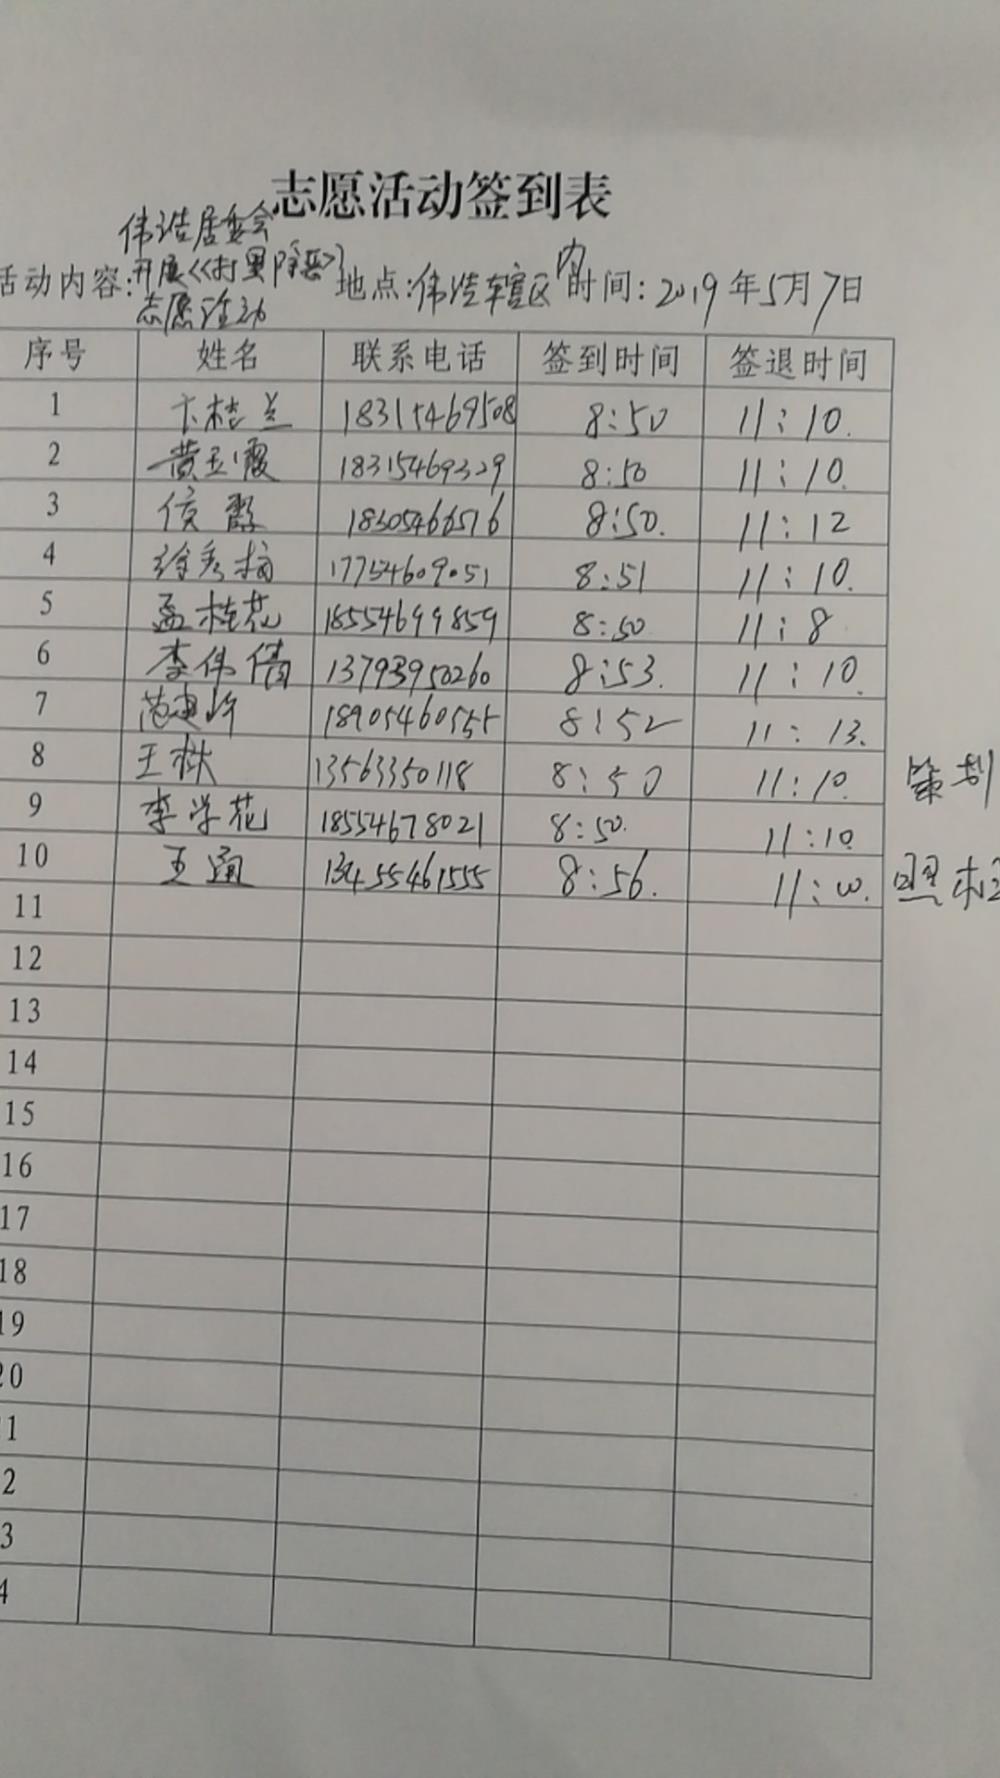 志愿活动签到表
伟浩居委会
活动内容:开展《扫黑除恶》地点:伟浩辖区内时间:2019年5月7日
志愿活动
序号 姓名 联系电话 签到时间 签退时间
1 卞桂兰 18315469508 8:50 11:10.
2 黄玉霞 18315469329 8:50 11:10.
3 侯 18305466576 8:50. 11:12
4 徐秀梅 17754609051 8:51 11:10.
5 孟桂花 18554699859 8:50 11:8
6 李伟倩 13793950260 8:53. 11:10.
7 18905460555 8:52 11:13.
8 王秋 13563350118 8:50 11:10. 策划
9 李学花 18554678021 8:50. 11:10.
10 王通 13455461555 8:56. 11:10. 照相
11
12
13
14
15
16
17
18
19
20
1
2
3
4